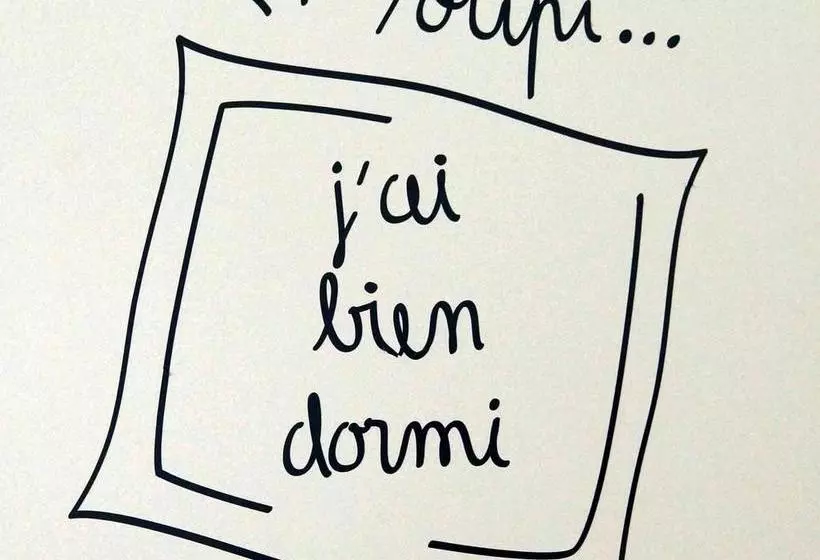 j'ai
bien
dormi